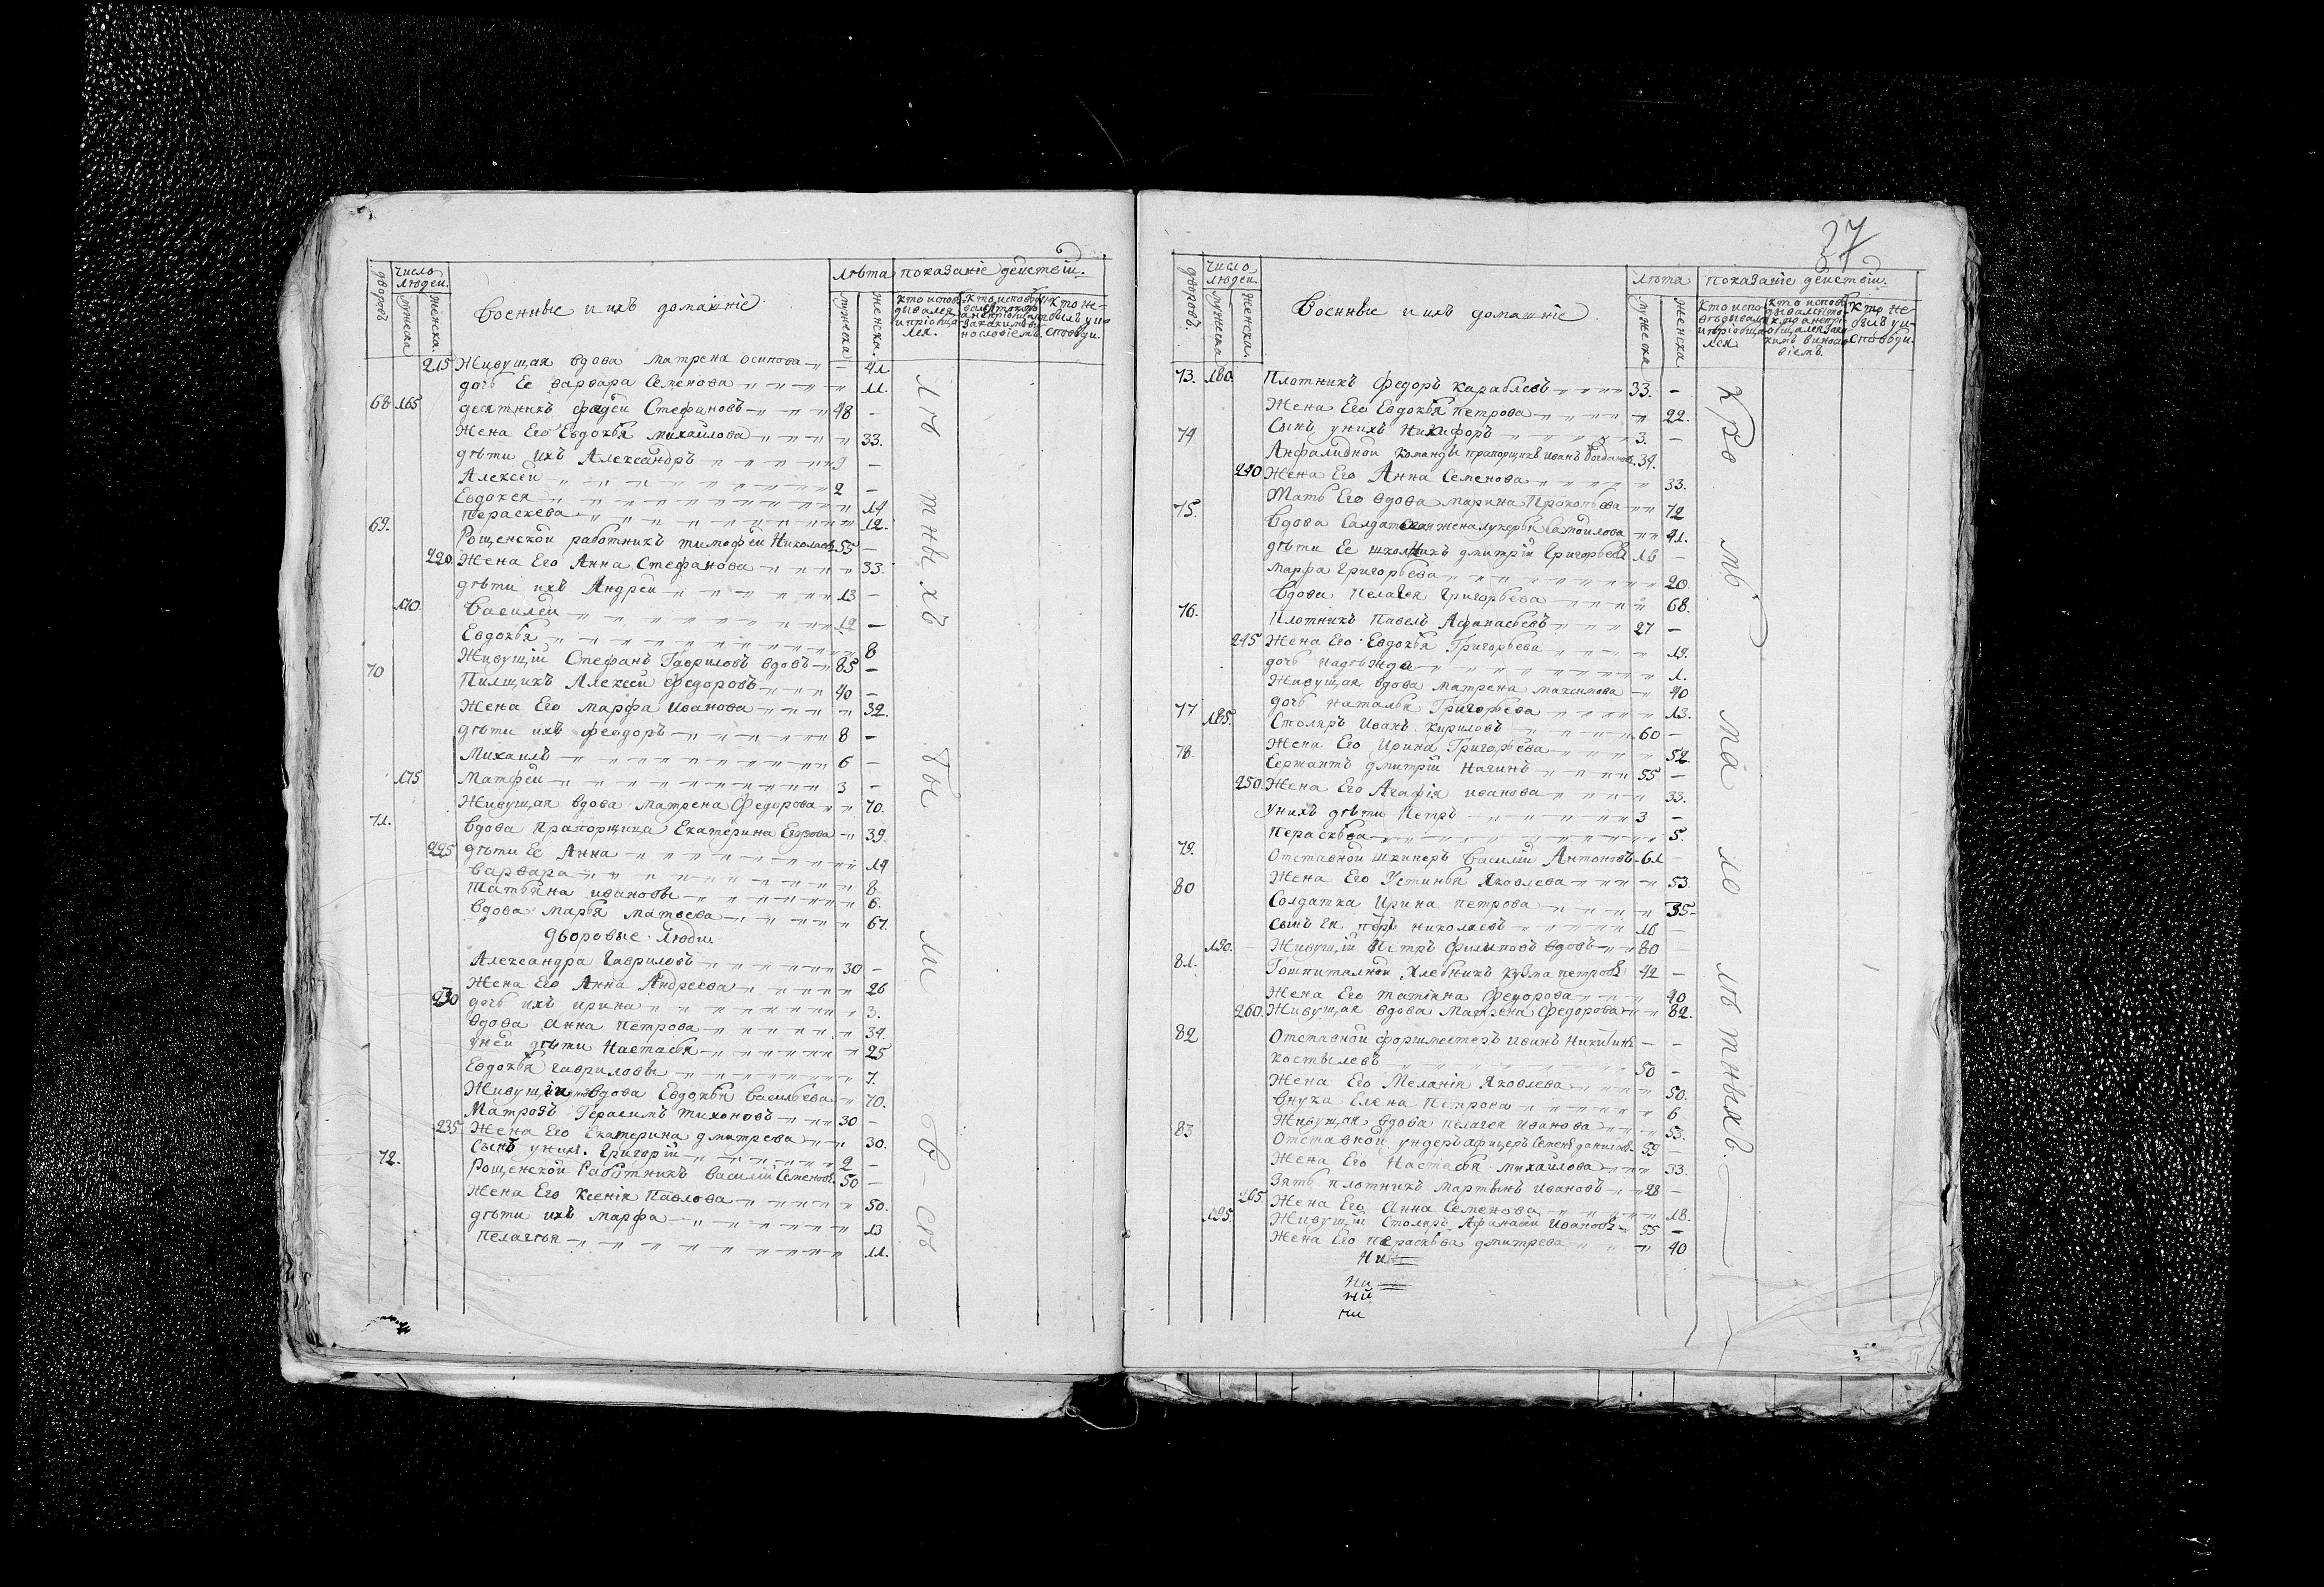 дворовъ
число людей.
мужеска
женска
Военные и ихъ домашніе
лѣта
мужеска
женска.
показаніе действій.
215 Живущая вдова Матрена Осипова — 41
дочь Ее Варвара Семенова 11.
68 165 десятникъ фадѣи Стефановъ 48 —
Жена Его Евдокѣя Михайлова 33.
дѣти ихъ Александръ 9 —
Алексей 2 —
Евдокея 14
Пераскева 12.
69. Рощенской работникъ Тимофей Николаевъ 55 —
220. Жена Его Анна Стефанова 33.
дѣти ихъ Андреи 13 —
170. Василеи 12 —
Евдокѣя 8
Живущій Стефанъ Гавриловъ вдовъ 85 —
70 Пилщикъ Алексей Федоровъ 40 —
Жена Его Марфа Иванова 32.
дѣти ихъ Феодоръ 8 —
Михаилъ 6 —
175 Матфеи 3 —
Живущая вдова Матрена Федорова 70.
71. Вдова Прапорщица Екатерина Егорова 39.
225 дѣти Ее Анна 14
Варвара 8
Татьяна Ивановы 6.
вдова Марья Матвеева 67.
дворовые люди
Александра Гавриловъ 30 —
Жена Его Анна Андреева 26
230 дочь ихъ Ирина 3.
вдова Анна Петрова 34.
у ней дѣти Настасья 25
Евдокѣя Гавриловы 7.
вдова Евдокѣя Васильева 70.
Матрозъ Герасимъ Тихоновъ 30 —
235 Жена Его Екатерина дмитрева 30.
Сынъ у нихъ Григорій 2 —
72. Рощенской Работникъ Василій Семеновъ 50 —
Жена Его Ксенія Павлова 50.
дѣти ихъ Марфа 13
Пелагѣя 11.
37
дворовъ.
число людей.
мужеска
женска.
Военные и ихъ домашніе.
лѣта
мужеска
женска
показаніе действій.
73. 180. Плотникъ Федоръ Караблевъ 33. —
Жена Его Евдокѣя Петрова 22.
Сынъ у нихъ Никифоръ 3. —
74 команды прапорщикъ Иванъ Богдановъ 34.
240 Жена Его Анна Семенова 33.
Мать Его вдова Марина Прокопьева 72
75. Вдова Салдатская жена Лукерья Самойлова 41.
дѣти Ее школникъ дмитрій Григорьевъ 16 —
Марфа Григорьева 20.
Вдова Пелагея Григорьева 68.
76. Плотникъ Павелъ Афанасьевъ 27 —
245 Жена Его Евдокѣя Григорьева 19.
дочь надѣжда 1.
Живущая вдова Матрена Максимова 40
дочь Наталья Григорьева 13.
77 185. Столяръ Иванъ Кириловъ 60 —
Жена Его Ирина Григорьева 52
78. Сержантъ дмитрій Нагинъ 55 —
250. Жена Его Агафія Иванова 33.
у нихъ дѣти Петръ 3 —
Пераскѣва 5.
79. Отставной шхиперъ Василій Антоновъ 61 —
Жена Его Устинья Яковлева 53.
80 Солдатка Ирина Петрова 35
сынъ Ея Николаевъ 16 —
190. Живущій Петръ Филиповъ вдовъ 80 —
81. Гошпиталной Хлебникъ Кузма Петровъ 42 —
Жена Его Татіяна Федорова 40
260. Живущая вдова Матрена Федорова 82.
82 Отставной форшместеръ Иванъ Никитинъ — —
Костылевъ 50 —
Жена Его Меланія Яковлева 50.
внука Елена Петрова 6
Живущая вдова Пелагея Иванова 53.
83 Отставной ундеръ афицеръ Семенъ даниловъ 59 —
Жена Его Настасья Михайлова 33
Зять плотникъ Мартынъ Ивановъ 28 —
265. Жена Его Анна Семенова 18.
195. Живущій Столяръ Афанасей Ивановъ 55 —
Жена Его Пераскѣва дмитрева 40